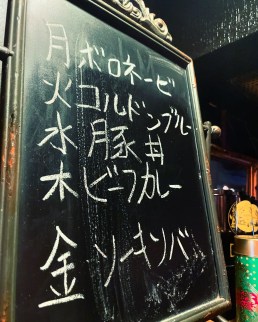 月ボロネーゼ
火コルドンブルー
水 豚丼
木ビーフカレー
金 ソーキソバ